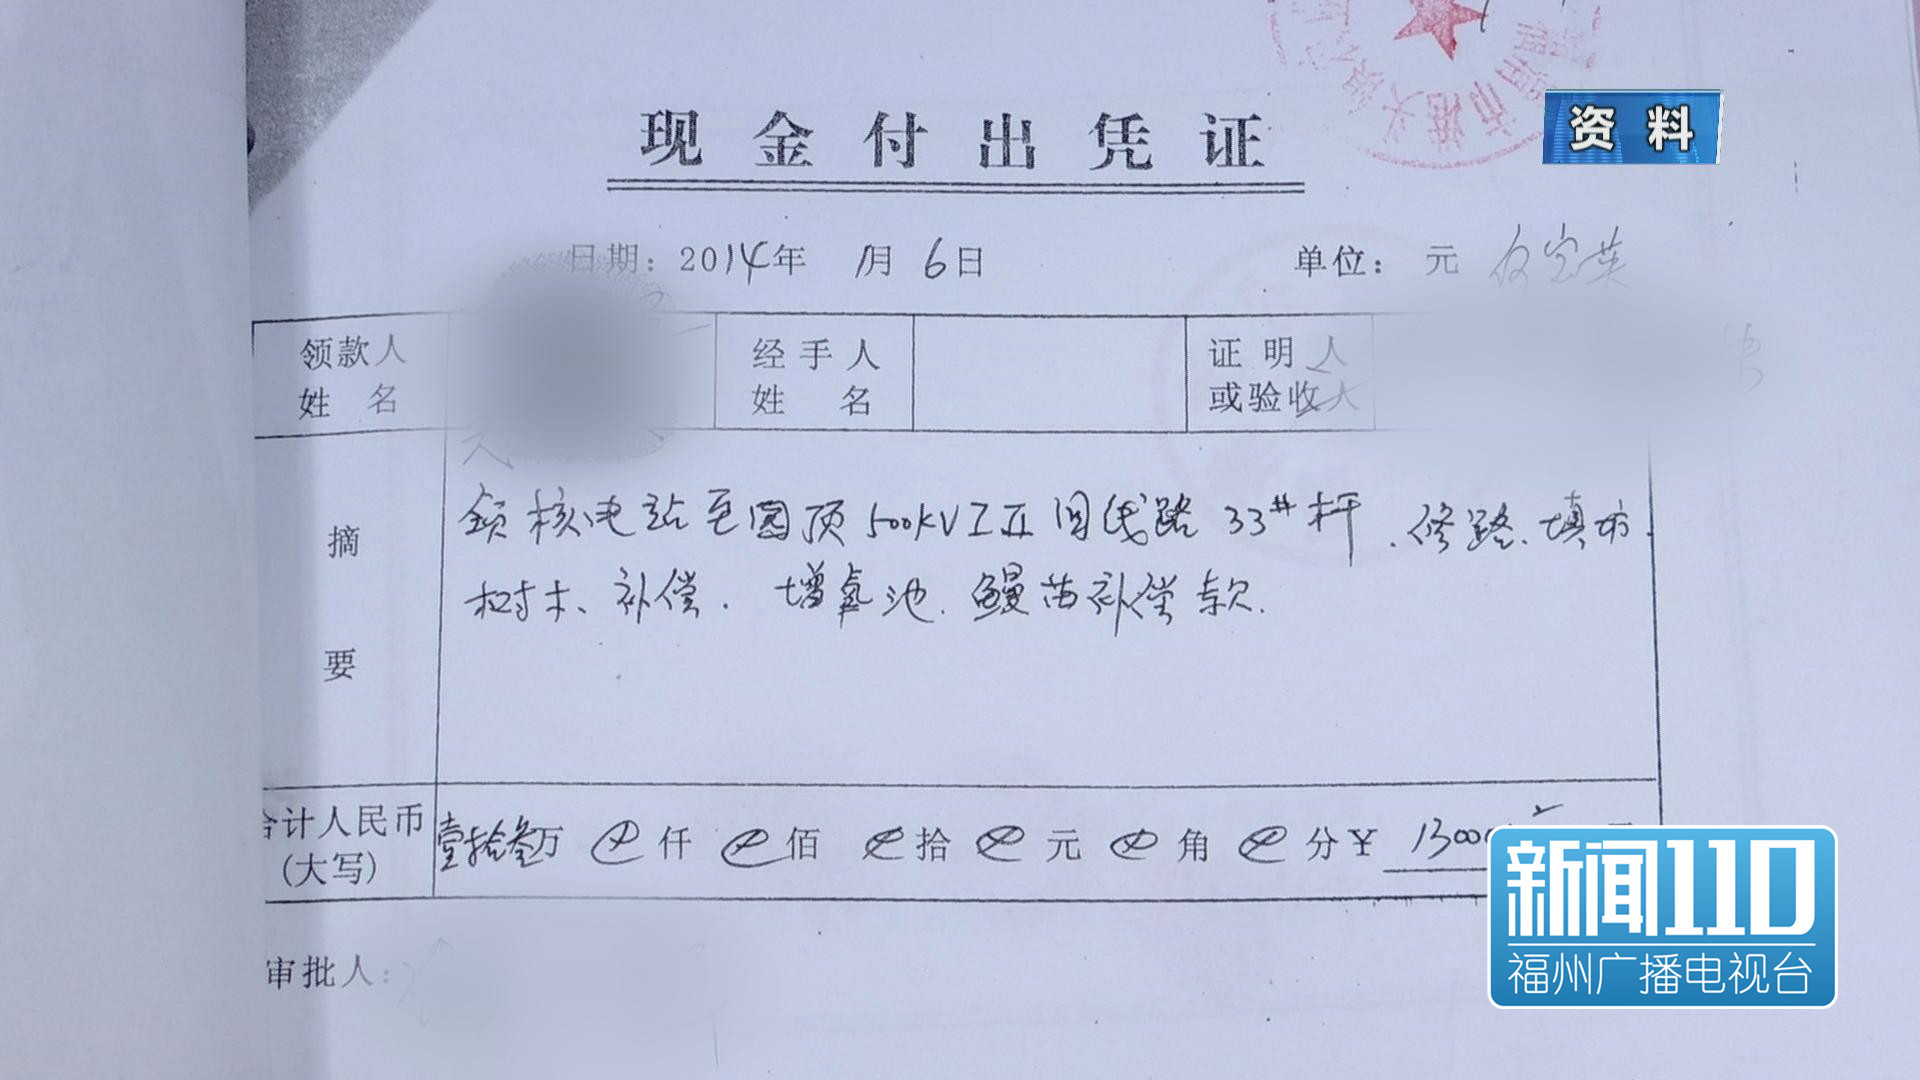 资 料
现金付出凭证
日期：2014年 1月 6日 单位：元
领款人 经手人 证明人
姓 名 姓 名 或验收人
摘
领核电站至园顶500KVⅠⅡ回线路33#杆.修路.填坊.
树木、补偿.增氧池.鳗苗补偿款.
要
合计人民币
(大写) 壹拾叁万 仟 佰 拾 元 角 分¥
审批人：
新闻110
福州广播电视台